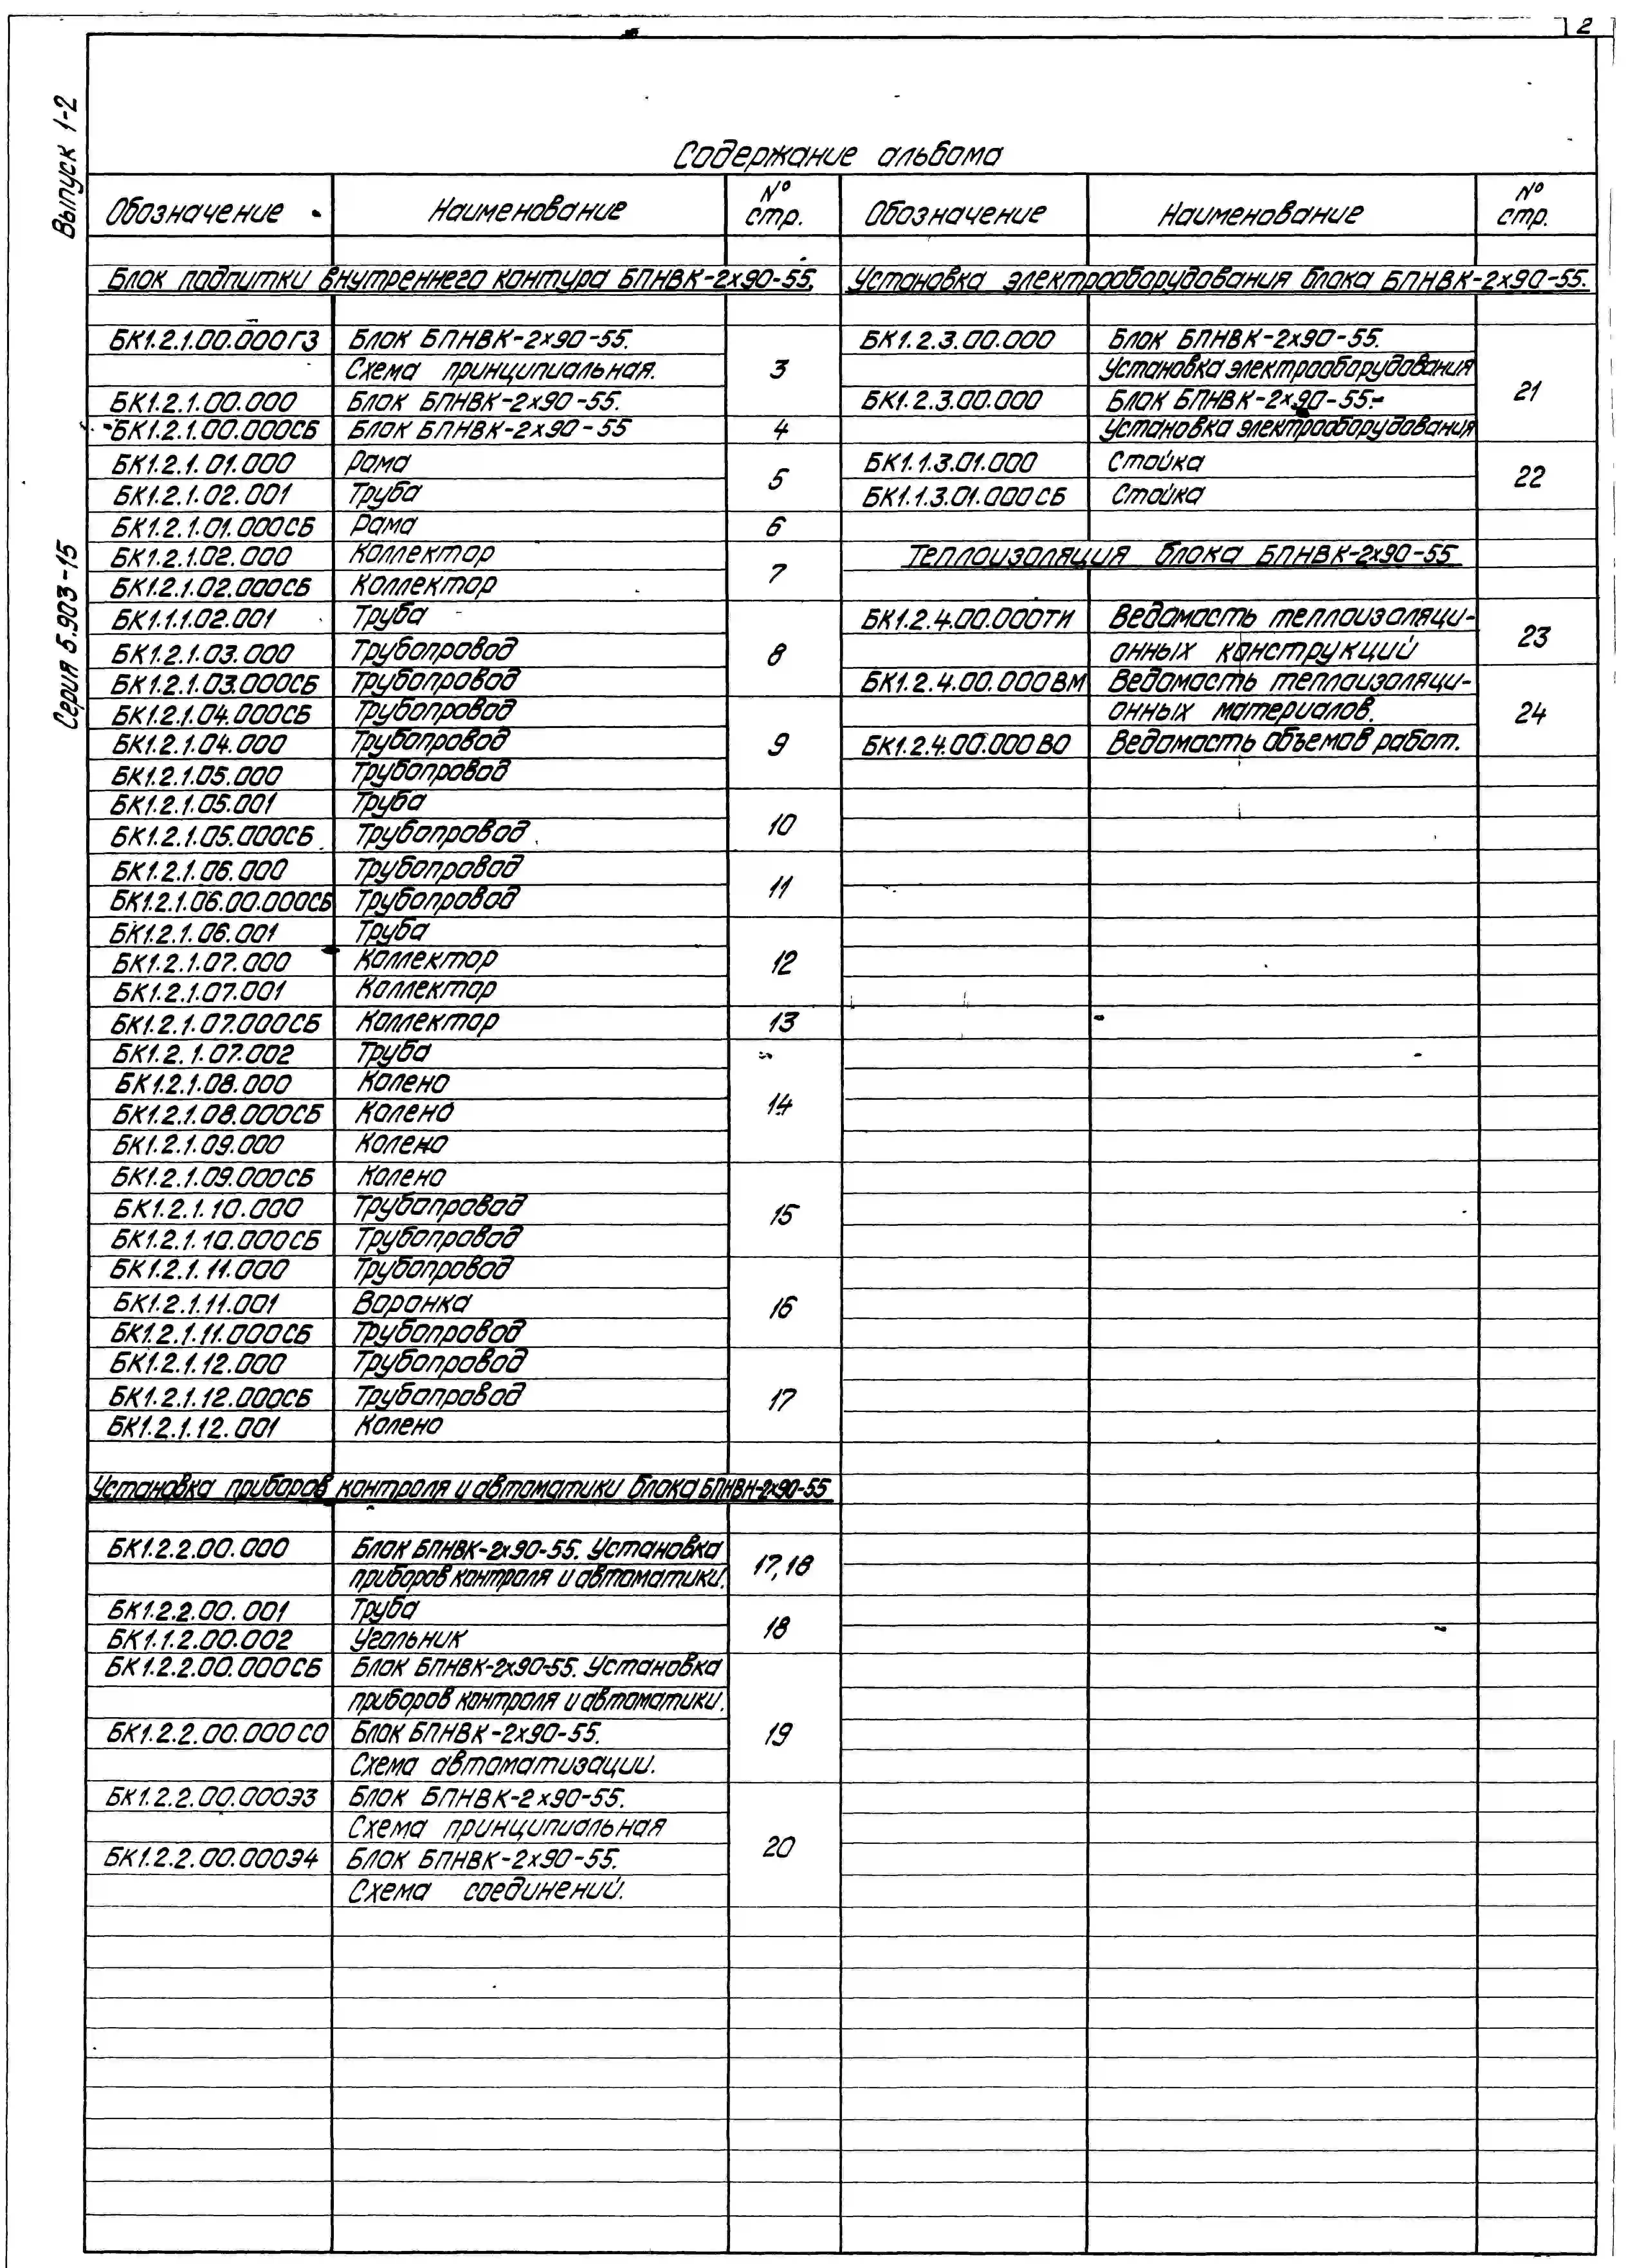 2
Выпуск 1-2
Серия 5.903-15
Содержание альбома
Обозначение Наименование № стр. Обозначение Наименование № стр.
Блок подпитки внутреннего контура БПНВК-2х90-55.
БК1.2.1.00.000ГЗ Блок БПНВК-2х90-55.
Схема принципиальная. 3
БК1.2.1.00.000 Блок БПНВК-2х90-55.
БК1.2.1.00.000СБ Блок БПНВК-2х90-55 4
БК1.2.1.01.000 Рама
БК1.2.1.02.001 Труба 5
БК1.2.1.01.000СБ Рама 6
БК1.2.1.02.000 Коллектор
БК1.2.1.02.000СБ Коллектор 7
БК1.1.1.02.001 Труба
БК1.2.1.03.000 Трубопровод 8
БК1.2.1.03.000СБ Трубопровод
БК1.2.1.04.000СБ Трубопровод
БК1.2.1.04.000 Трубопровод 9
БК1.2.1.05.000 Трубопровод
БК1.2.1.05.001 Труба
БК1.2.1.05.000СБ Трубопровод 10
БК1.2.1.06.000 Трубопровод
БК1.2.1.06.00.000СБ Трубопровод 11
БК1.2.1.06.001 Труба
БК1.2.1.07.000 Коллектор 12
БК1.2.1.07.001 Коллектор
БК1.2.1.07.000СБ Коллектор 13
БК1.2.1.07.002 Труба
БК1.2.1.08.000 Колено
БК1.2.1.08.000СБ Колено 14
БК1.2.1.09.000 Колено
БК1.2.1.09.000СБ Колено
БК1.2.1.10.000 Трубопровод 15
БК1.2.1.10.000СБ Трубопровод
БК1.2.1.11.000 Трубопровод
БК1.2.1.11.001 Воронка 16
БК1.2.1.11.000СБ Трубопровод
БК1.2.1.12.000 Трубопровод
БК1.2.1.12.000СБ Трубопровод 17
БК1.2.1.12.001 Колено
Установка приборов контроля и автоматики блока БПНВН-2х90-55
БК1.2.2.00.000 Блок БПНВК-2х90-55. Установка
приборов контроля и автоматики. 17,18
БК1.2.2.00.001 Труба
БК1.1.2.00.002 Угольник 18
БК1.2.2.00.000СБ Блок БПНВК-2х90-55. Установка
приборов контроля и автоматики.
БК1.2.2.00.000СО Блок БПНВК-2х90-55. 19
Схема автоматизации.
БК1.2.2.00.000Э3 Блок БПНВК-2х90-55.
Схема принципиальная
БК1.2.2.00.000Э4 Блок БПНВК-2х90-55. 20
Схема соединений.
Установка электрооборудования блока БПНВК-2х90-55.
БК1.2.3.00.000 Блок БПНВК-2х90-55.
Установка электрооборудования
БК1.2.3.00.000 Блок БПНВК-2х90-55.- 21
Установка электрооборудования
БК1.1.3.01.000 Стойка
БК1.1.3.01.000СБ Стойка 22
Теплоизоляция блока БПНВК-2х90-55
БК1.2.4.00.000ТИ Ведомость теплоизоляци-
онных конструкций 23
БК1.2.4.00.000ВМ Ведомость теплоизоляци-
онных материалов. 24
БК1.2.4.00.000ВО Ведомость объемов работ.